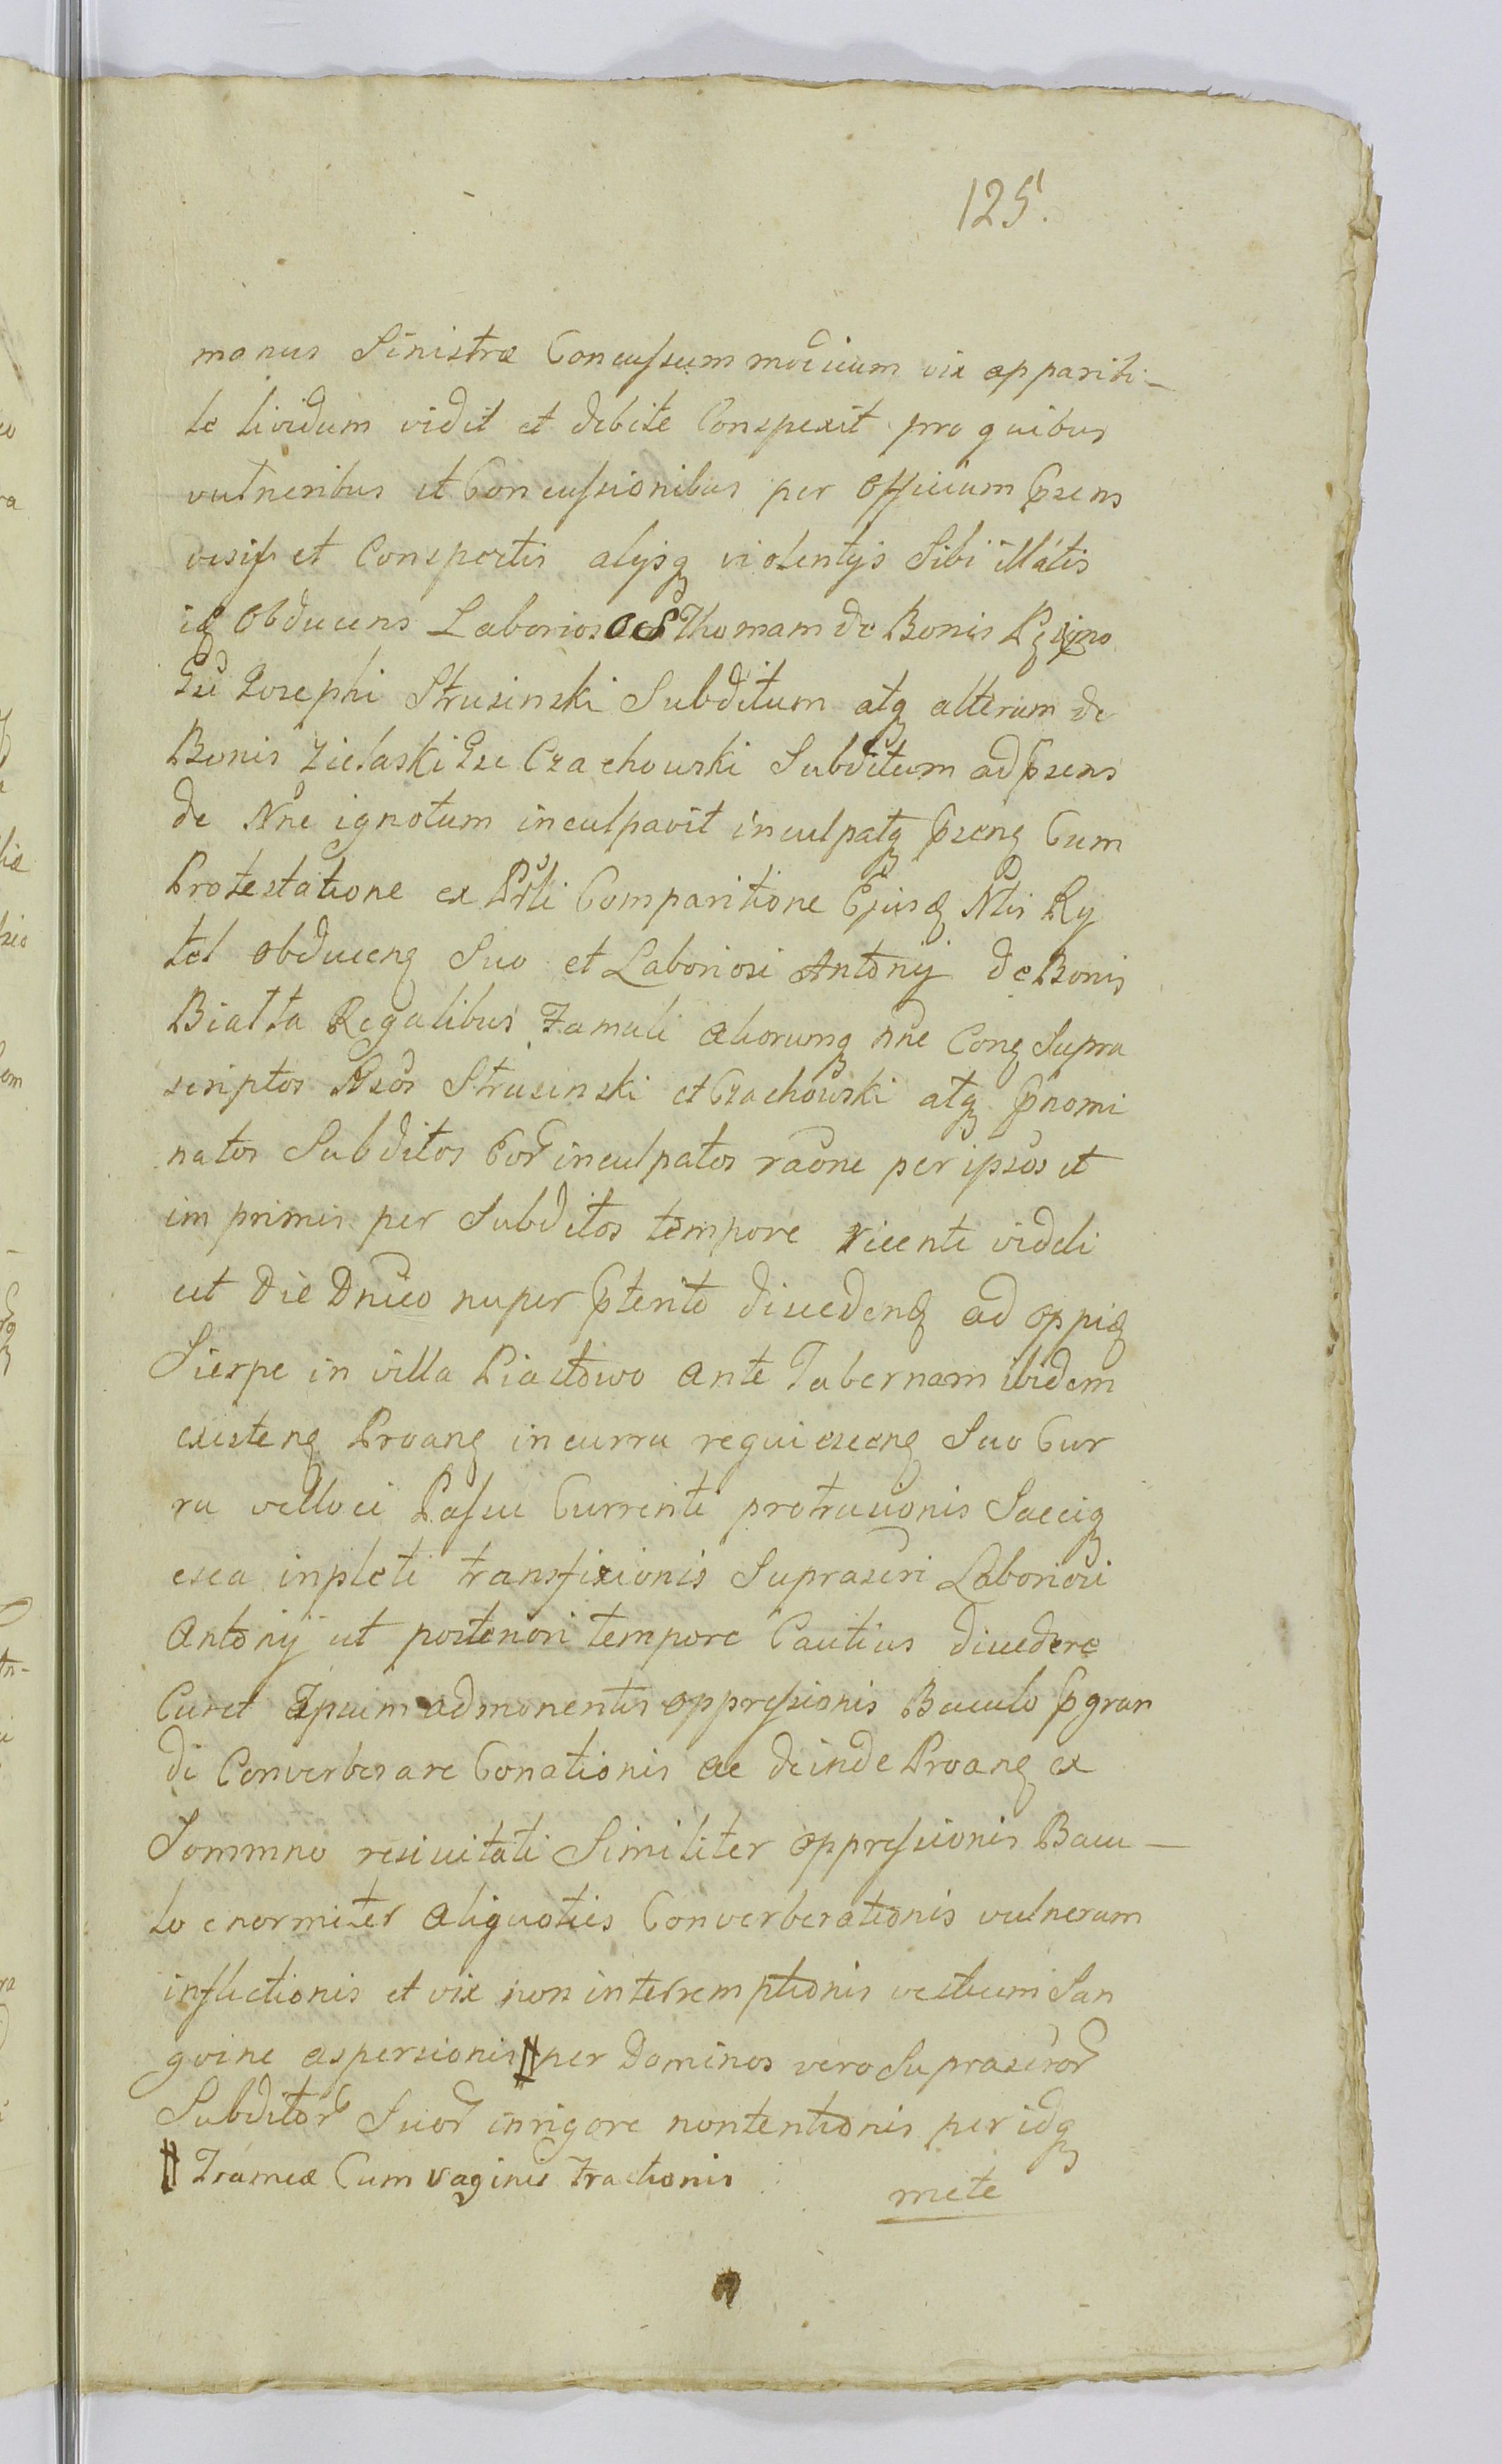 125.
manus Sinistræ Concussum modicum vix apparibi-
le lividum vidit et debite Conspexit pro quibus
vulneribus et Concussionibus per Officium Pñsens
visis et Conspectis alijsq violentijs Sibi illatis
idq Obducens Laborios Thomam de Bonis
Josephi Strusinski Subditum atq alterum de
Bonis Zielaski Gsi Czachowski Subditum ad psens
de Nñe ignotum inculpavit inculpatq psenq Cum
Protestatione ex Psli Comparitione Ejusdq Nlis Ry
tel obducenq Suo et Laboriosi Antonij de Bonis
Biatta Regalibus Famuli aliorumq nñe Conq Supra
scriptos Gsos Strusinski et Czachowski atq pnomi
natos Subditos Eor inculpatos raõne per ipsos et
imprimis per Subditos tempore ricente videli
cet Die Dnico nuper pterito discedenq ad oppidq
Sierpc in villa Piastowo ante Tabernam ibidem
existenq Proanq in curru requiescenq Suo Cur
ru velloci Passu Currenti protrusionis Saeciq
esca inpleti transfixionis Suprascri Laboriosi
Antonij ut posteriori tempore Cautius discedere
Curet Ipsum admonentis oppressionis Baculo pgran
di Converberare Conationis ac deinde Proanq ex
Sommno resuscitati Similiter oppressionis Bacu-
lo enormiter aliquoties Converberationis vulnerum
inflictionis et vix non interremptionis vestium San
guine aspersionis # per Dominos vero Suprascror
Subditor Suor in rigore nontentionis per idq
# Frameæ Cum vaginis Tractionis
mete